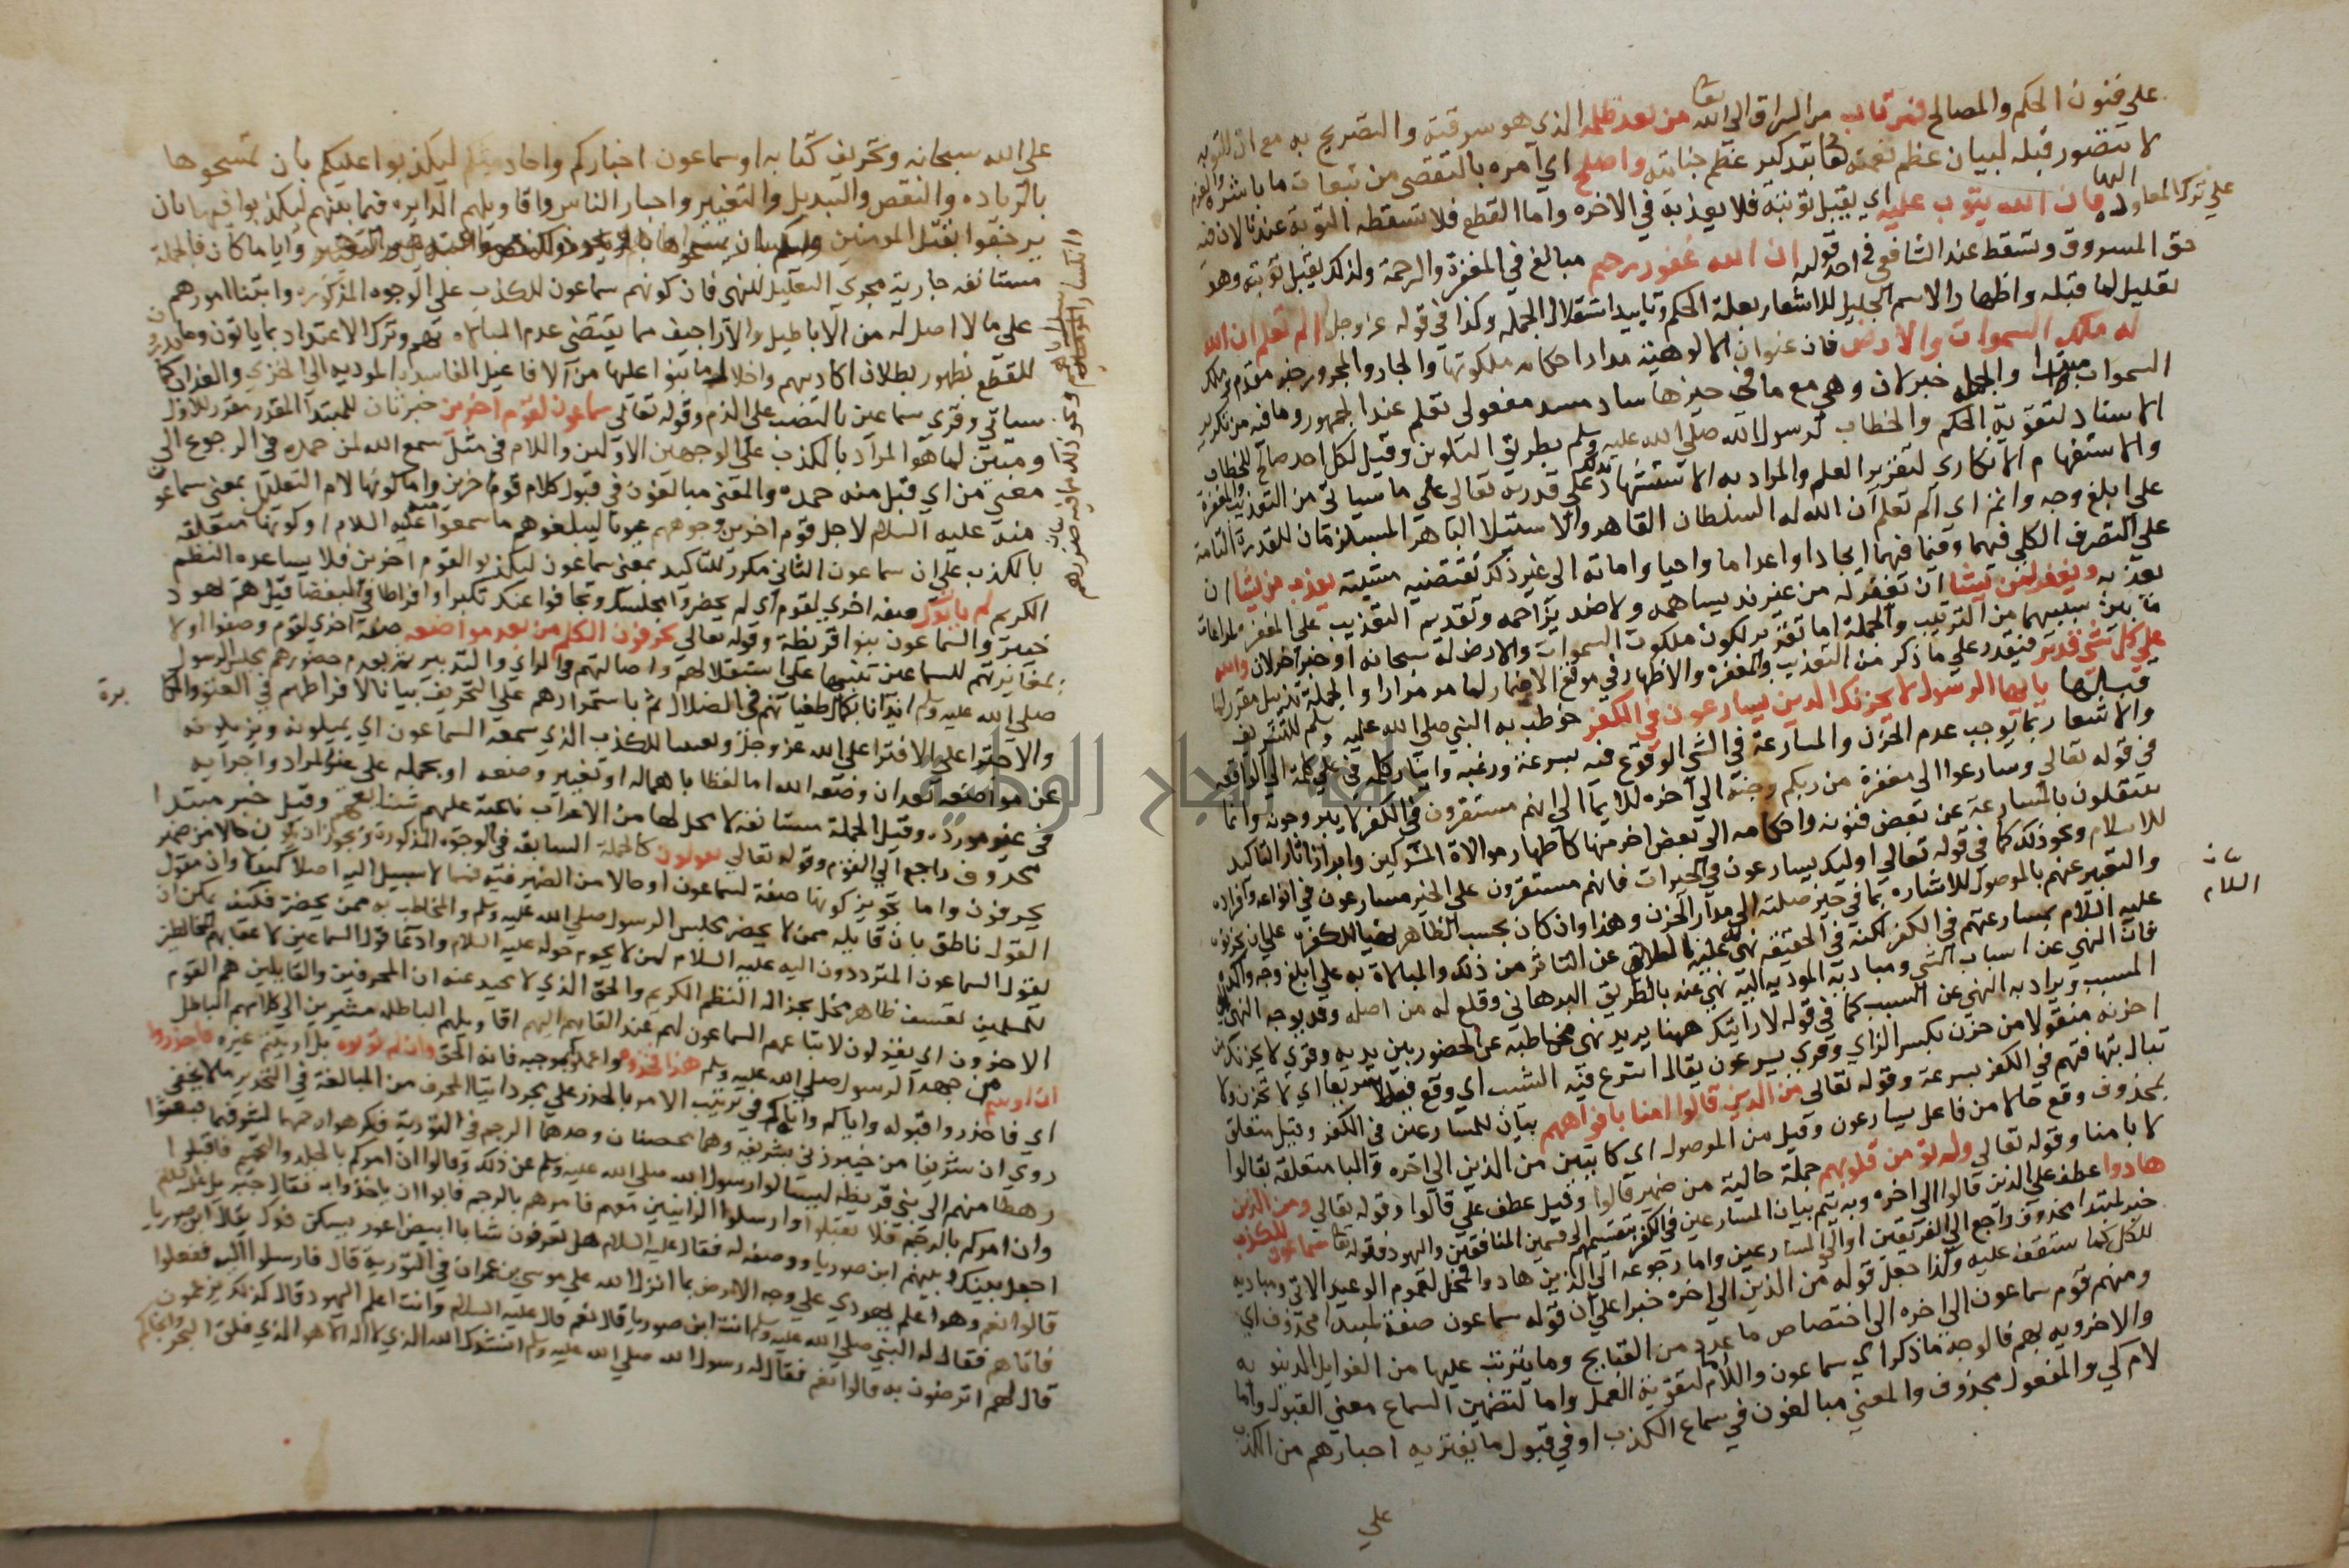 على فنون الحكم والمصالح فمن تاب من السراق الى الله تعا من بعد ظلمه الذي هو سرقته والتصريح به مع ان التوبه
لا تتصور قبله لبيان عظم نعمته تعا بتذكير عظم جنايته واصلح اي امره بالتقصي من تبعات ما باشره والعزم
على ترك المعاودة اليها فان الله يتوب عليه اي يقبل توبته فلا يعذبه في الاخره واما القطع فلا تسقطه التوبة عندنا لان فيه
حق المسروق وتسقط عند الشافعي في احد قوليه ان الله غفور رحيم مبالغ في المغفرة والرحمة ولذلك يقبل توبته وهو
تعليل لما قبله واظهار الاسم الجليل للاشعار بعلة الحكم وتاييد استقلال الجمله وكذا في قوله عز وجل الم تعلم ان الله
له ملك السموات والارض فان عنوان الالوهية مدار احكام ملكوتها والجار والمجرور خبر مقدم وملك
السموات مبتدا والجمله خبر لان وهي مع ما في حيزها ساد مسد مفعولي تعلم عند الجمهور وما فيه من تكرير
الاسناد لتقوية الحكم والخطاب لرسول الله صلى الله عليه وسلم بطريق التلوين وقيل لكل احد صالح للخطاب
والاستفهام الانكاري لتقرير العلم والمراد به الاستشهاد بذلك على قدرته تعالى على ما سياتي من التعذيب والمغفرة
على ابلغ وجه واتم اي الم تعلم ان الله له السلطان القاهر والاستيلا الباهر المستلزمان للقدرة التامة
على التصرف الكلي فيهما وفيما فيهما ايجادا واعداما واحيا واماتة الى غير ذلك تقتضيه مشيته يعذب من يشا ان
يعذبه ويغفر لمن يشا ان يغفر له من غير ند يساهمه ولا ضد يزاحمه وتقديم التعذيب على المغفرة لمراعات
ما بين سببيهما من الترتيب والجملة اما تقرير لكون ملكوت السموات والارض له سبحانه او خبر اخر لان والله
على كل شي قدير فيقدر على ما ذكر من التعذيب والمغفرة والاظهار في موقع الاضمار لما مر مرارا والجملة تذييل مقرر لما
قبلها يا ايها الرسول لا يحزنك الذين يسارعون في الكفر خوطب به النبي صلى الله عليه وسلم للتشريف
والاشعار بما يوجب عدم الحزن والمسارعة في الشي الوقوع فيه بسرعة ورغبة وايثار كلمة في على كلمة الى الواقعه
في قوله تعالى وسارعوا الى مغفرة من ربكم وجنة الى اخره للايما الى انهم مستقرون في الكفر لا يبرحون وانما
ينتقلون بالمسارعة عن بعض فنونه واحكامه الى بعض اخر منها كاظهار موالاة المشركين وابراز اثار الكيد
للاسلام ونحو ذلك كما في قوله تعالى اوليك يسارعون في الخيرات فانهم مستقرون على الخير مسارعون في انواعه وافراده
والتعبير عنهم بالموصول للاشاره بما في حيز صلته الى مدار الحزن وهذا وان كان بحسب الظاهر نهيا للكفرة على ان يحزنوه
عليه السلام بمسارعتهم في الكفر لكنه في الحقيقة نهي له عليه السلام عن التاثر من ذلك والمبالاة به على ابلغ وجه واكده
فان النهي عن اسباب الشي ومباديه الموديه اليه نهي عنه بالطريق البرهاني وقلع له من اصله وقد يوجه النهي الى
المسبب ويراد به النهي عن السبب كما في قوله لا رايتك ههنا يريد نهي مخاطبه عن الحضور بين يديه وقري لا يحزنك من
احزنه منقولا من حزن بكسر الزاي وقري يسرعون يقال اسرع فيه الشيب اي وقع فيه سريعا اي لا تحزن ولا
تبال بتهافتهم في الكفر بسرعة وقوله تعالى من الذين قالوا امنا بافواههم بيان للمسارعين في الكفر وقيل متعلق
بمحذوف وقع حالا من فاعل يسارعون وقيل من الموصول اي كاينين من الذين الى اخره والبا متعلقة بقالوا
لا بامنا وقوله تعالى ولم تؤمن قلوبهم جملة حالية من ضمير قالوا وقيل عطف على قالوا وقوله تعالى ومن الذين
هادوا عطف على الذين قالوا الى اخره وبه يتم بيان المسارعين في الكفر بتقسيمهم الى قسمين المنافقين واليهود فقوله تعا سماعون للكذب
خبر لمبتدا محذوف راجع الى الفريقين او الى المسارعين واما رجوعه الى الذين هادوا فمخل لعموم الوعيد الاتي ومباديه
للكل كما ستقف عليه وكذا جعل قوله من الذين الى اخره خبرا على ان قوله سماعون صفة لمبتدا محذوف اي
ومنهم قوم سماعون الى اخره الى اختصاص ما عدد من القبايح وما يترتب عليها من الغوايل الدينيويه
والاخرويه بهم فالوجه ما ذكر اي سماعون واللام اما لتقوية العمل واما لتضمين السماع معنى القبول واما
لام كي والمفعول محذوف والمعنى مبالغون في سماع الكذب او في قبول ما يفتريه احبارهم من الكذب
على
على الله سبحانه وتحريف كتابه او سماعون اخباركم واحاديثكم ليكذبوا عليكم بان يمسخوها
بالزياده والنقص والتبديل والتغيير واخبار الناس واقاويلهم الدايره فيما بينهم ليكذبوا فيها بان
يرجفوا بقتل المومنين وانكسار سراياهم ونحو ذلك مما فيه ضررهم وايا ما كان فالجملة
مستانفه جارية مجرى التعليل للنهي فان كونهم سماعون للكذب على الوجوه المذكوره وابتنا امورهم
على ما لا اصل له من الاباطيل والاراجيف مما يقتضي عدم المبالاه بهم وترك الاعتداد بما ياتون وما يذرون
للقطع بظهور بطلان اكاذيبهم واختلال ما بنوا عليها من الافاعيل الفاسده الموديه الى الخزي والعذاب كما
سياتي وقري سماعين بالنصب على الذم وقوله تعالى سماعون لقوم اخرين خبر ثان للمبتدا المقدر مقرر للاول
ومبين لما هو المراد بالكذب على الوجهين الاولين واللام في مثل سمع الله لمن حمده في الرجوع الى
معنى من اي قبل منه حمده والمعنى مبالغون في قبول كلام قوم اخرين واما كونها لام التعليل بمعنى سماعون
منه عليه السلام لاجل قوم اخرين وجوههم عيونا ليبلغوهم ما سمعوا منه عليه السلام او كونها متعلقة
بالكذب على ان سماعون الثاني مكرر للتاكيد بمعنى سماعون ليكذبوا لقوم اخرين فلا يساعده النظم
الكريم لم ياتوك صفه اخرى لقوم اي لم يحضروا مجلسك وتجافوا عنك تكبرا وافراطا في البغضا قيل هم يهود
خيبر والسماعون بنوا قريظة وقوله تعالى يحرفون الكلم من بعد مواضعه صفة اخرى لقوم وصفوا اولا
بمغايرتهم للسماعين تنبيها على استقلالهم واصالتهم في الراي والتدبير ثم بعدم حضورهم مجلس الرسول
صلى الله عليه وسلم ايذانا بكمال طغيانهم في الضلال ثم باستمرارهم على التحريف بيانا لافراطهم في العتو والمكابرة
والاجترا على الافترا على الله عز وجل وتعيينا للكذب الذي سمعه السماعون اي يميلونه ويزيلونه
عن مواضعه بعد ان وضعه الله اما لفظا باهماله او تغيير وضعه او بحمله على غير المراد واجرايه
في غير مورده وقيل الجملة مستانفة لا محل لها من الاعراب ناعية عليهم شنايعهم وقيل خبر مبتدا
محذوف راجع الى القوم وقوله تعالى يقولون كالجملة السابقه في الوجوه المذكورة ويجوز ان يكون حالا من ضمير
يحرفون واما تجويز كونها صفة لسماعون او حالا من الضمير فيه فمما لا سبيل اليه اصلا كيف لا وان مقول
القول ناطق بان قايله ممن لا يحضر مجلس الرسول صلى الله عليه وسلم والمخاطب به ممن يحضره فكيف يمكن ان
يقول السماعون المترددون اليه عليه السلام لمن لا يحوم حوله عليه السلام وادعا قول السماعين لاعقابهم المخالطين
للمسلمين تعسف ظاهر مخل بجزالة النظم الكريم والحق الذي لا محيد عنه ان المحرفين والقايلين هم القوم
الاخرون اي يقولون لاتباعهم السماعون لهم عند القايهم اليهم اقاويلهم الباطله مشيرين الى كلامهم الباطل
ان اوتيتم من جهة الرسول صلى الله عليه وسلم هذا فخذوه واعملوا بموجبه فانه الحق وان لم تؤتوه بل اوتيتم غيره فاحذروا
اي فاحذروا قبوله واياكم واياكم وفي ترتيب الامر بالحذر على مجرد ايتا المحرف من المبالغة في التحذير ما لا يخفى
روي ان شريفا من خيبر زنى بشريفه وهما محصنان وحدهما الرجم في التورية فكرهوا رجمهما لشرفهما فبعثوا
رهطا منهم الى بني قريظه ليسالوا رسول الله صلى الله عليه وسلم عن ذلك وقالوا ان امركم بالجلد والتحميم فاقبلوا
وان امركم بالرجم فلا تقبلوا وارسلوا الزانيين معهم فامرهم بالرجم فابوا ان ياخذوا به فقال جبريل عليه السلام
اجعل بينك وبينهم ابن صوريا ووصفه له فقال عليه السلام هل تعرفون شابا ابيض اعور يسكن فدك يقال له ابن صوريا
قالوا نعم وهو اعلم يهودي على وجه الارض بما انزل الله على موسى بن عمران في التورية قال فارسلوا اليه ففعلوا
فاتاهم فقال له النبي صلى الله عليه وسلم انت ابن صوريا قال نعم قال عليه السلام وانت اعلم اليهود قال كذلك يزعمون
قال لهم اترضون به قالوا نعم فقال له رسول الله صلى الله عليه وسلم انشدك الله الذي لا اله الا هو الذي فلق البحر وانجاكم